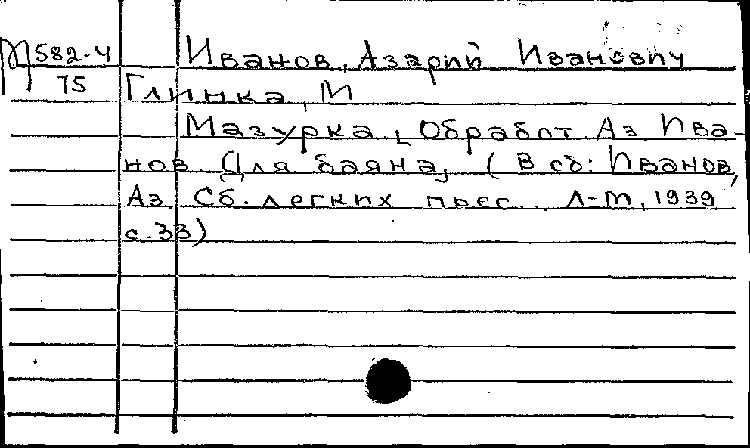 М 582-4 Иванов, Азарий Иванович
75 Глинка, М
Мазурка, Обработ. Аз Ива-
нов. Для баяна, (В сб: Иванов,
Аз. Сб. легких пьес. Л-М, 1939
с. 33)